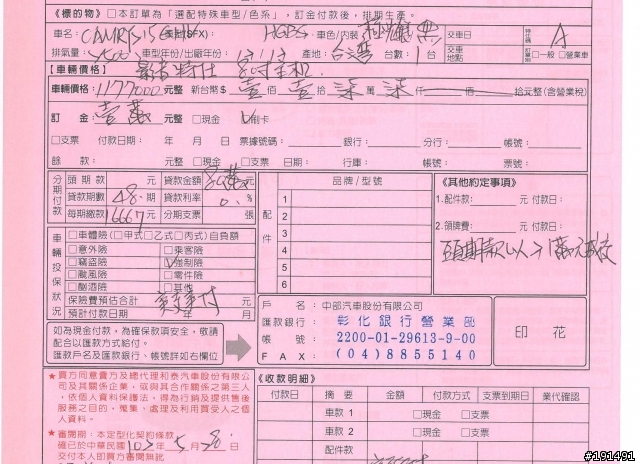 《標的物》□本訂單為「選配特殊車型/色系」,訂金付款後,排期生產。
車名: CAMRY 車色/內裝 交車日
排氣量: 車型年份/出廠年份: 12 / 12 產地: 台灣 台數: 1 台 交車地點 訂單□一般 □營業車 A
【車輛價格】
車輛價格: 1177000 元整 新台幣$ 壹 佰 壹 拾 柒 萬 柒 仟 佰 拾元整(含營業稅)
訂 金 壹萬 元整 □現金 V刷卡
□支票 付款日期: 年 月 日 票據號碼: 銀行: 分行: 帳號:
餘 款: 元整 □現金 □支票 日期: 行庫: 帳號: 票號:
分期付款
頭期款 元 貸款金額 80萬 元
貸款期數 48 期 貸款利率 0. %
每期繳款 16667 元 分期支票 張
配件 品牌/型號
1
2
3
4
5
6
《其他約定事項》
1.配件款: 元 付款日:
2.領牌費: 元 付款日:
車輛投保狀況
□車體險(□甲式□乙式□丙式)自負額
□意外險 □乘客險
□竊盜險 V強制險
□颱風險 □零件險
□酗酒險 □其他
保險費預估合計 元
預計付款日期 年 月 日
如為現金付款,為確保款項安全,敬請
配合以匯款方式給付。
匯款戶名及匯款銀行、帳號詳如右欄位
戶 名: 中部汽車股份有限公司
匯款銀行: 彰化銀行營業部
帳 號: 2200-01-29613-9-00
F A X: (04)8855140
印 花
★買方同意賣方及總代理和泰汽車股份有限公
司及其關係企業,或與其合作關係之第三人
,依個人資料保護法,得為行銷及提供售後
服務之目的,蒐集、處理及利用買受人之個
人資料。
★審閱期:本定型化契約條款
確已於中華民國 102 年 5 月 28 日
交付本人即買方審閱無訛
《收款明細》
付款日 摘 要 金額 付款方式 支票到期日 業代確認
車款 1 □現金 □支票
車款 2 □現金 □支票
配件款
#191491